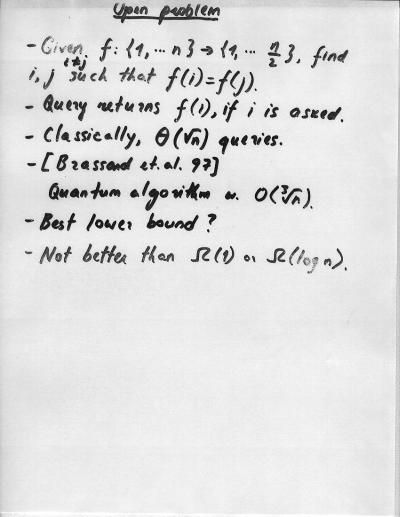 Open problem
- Given f: {1, ... n} → {1, ... n/2}, find
i≠j
i, j such that f(i)=f(j).
- Query returns f(i), if i is asked.
- Classically, Θ(√n) queries.
- [Brassard et. al. 97]
Quantum algorithm w. O(∛n).
- Best lower bound?
- Not better than Ω(1) or Ω(log n).